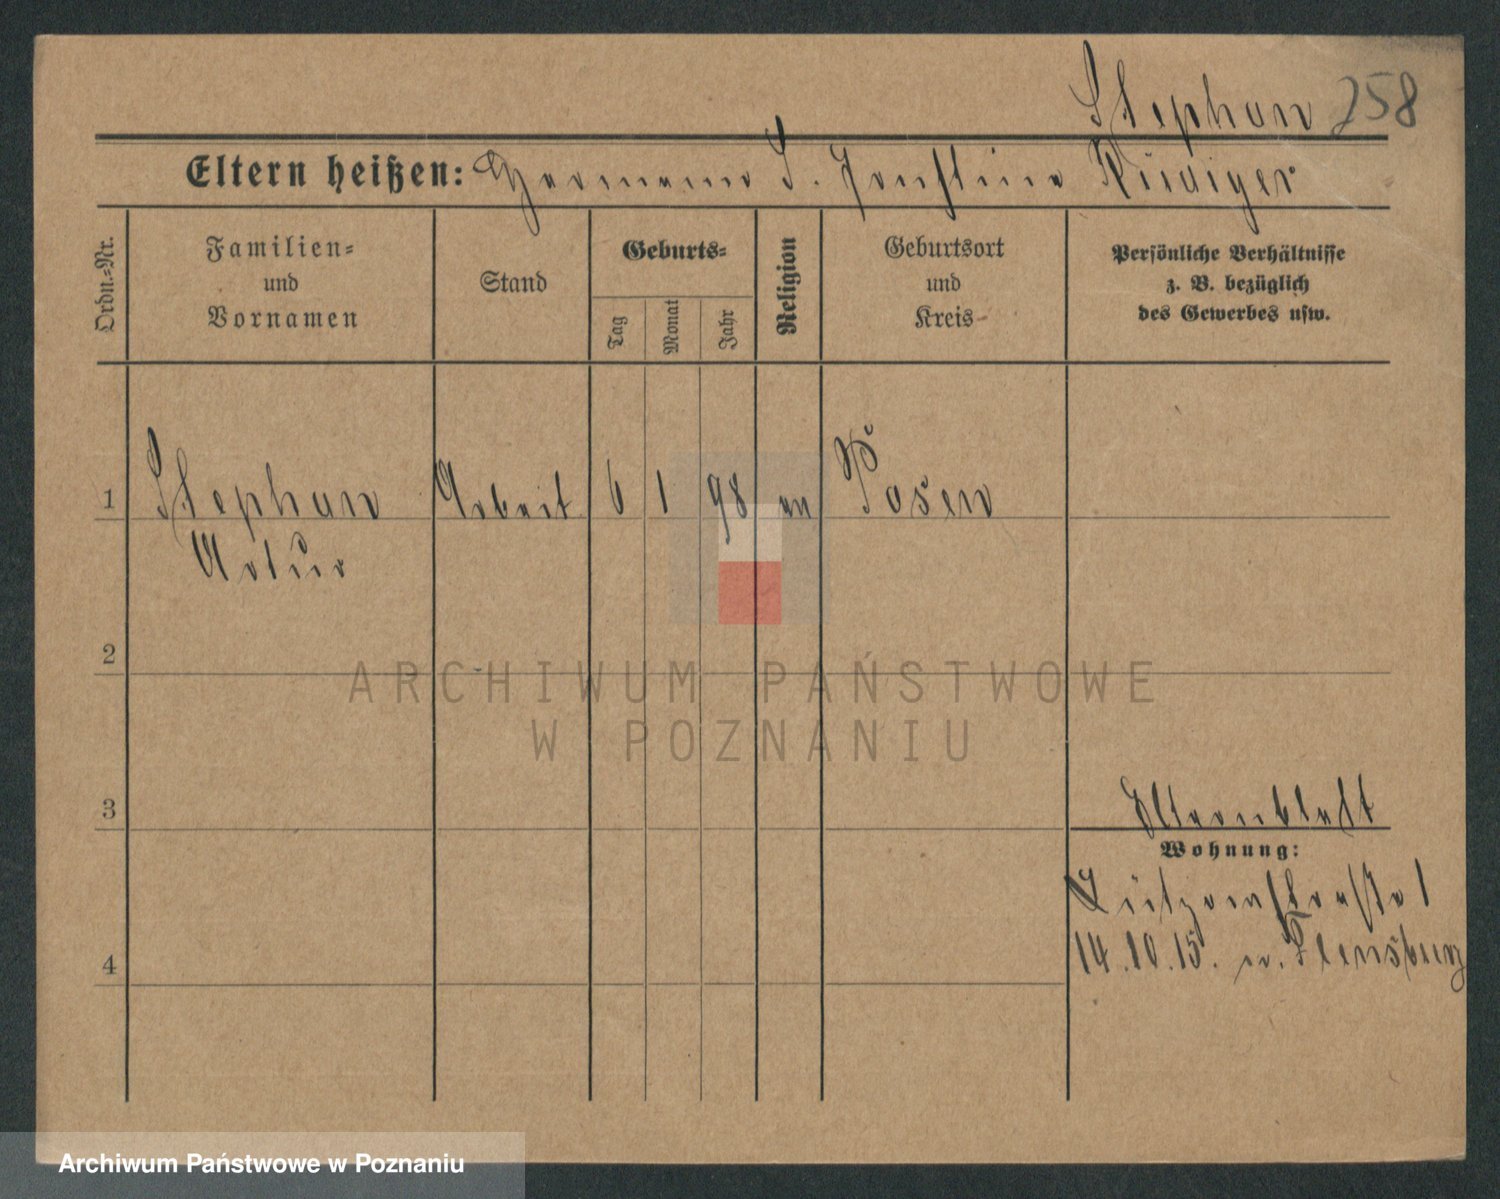 Stephan 258
Eltern heißen: Hermann S. Ernstine Rüdiger
Ordn.=Nr.
Familien=
und
Vornamen
Stand
Geburts=
Tag
Monat
Jahr
Religion
Geburtsort
und
Kreis
Persönliche Verhältnisse
z. B. bezüglich
des Gewerbes usw.
1 Stephan Arbeit 6 1 98 ev Posen
Artur
2
ARCHIWUM PAŃSTWOWE
W POZNANIU
3 Elternblatt
Wohnung:
Lützowstraße 1
4 14.10.15. n. Flensburg
Archiwum Państwowe w Poznaniu